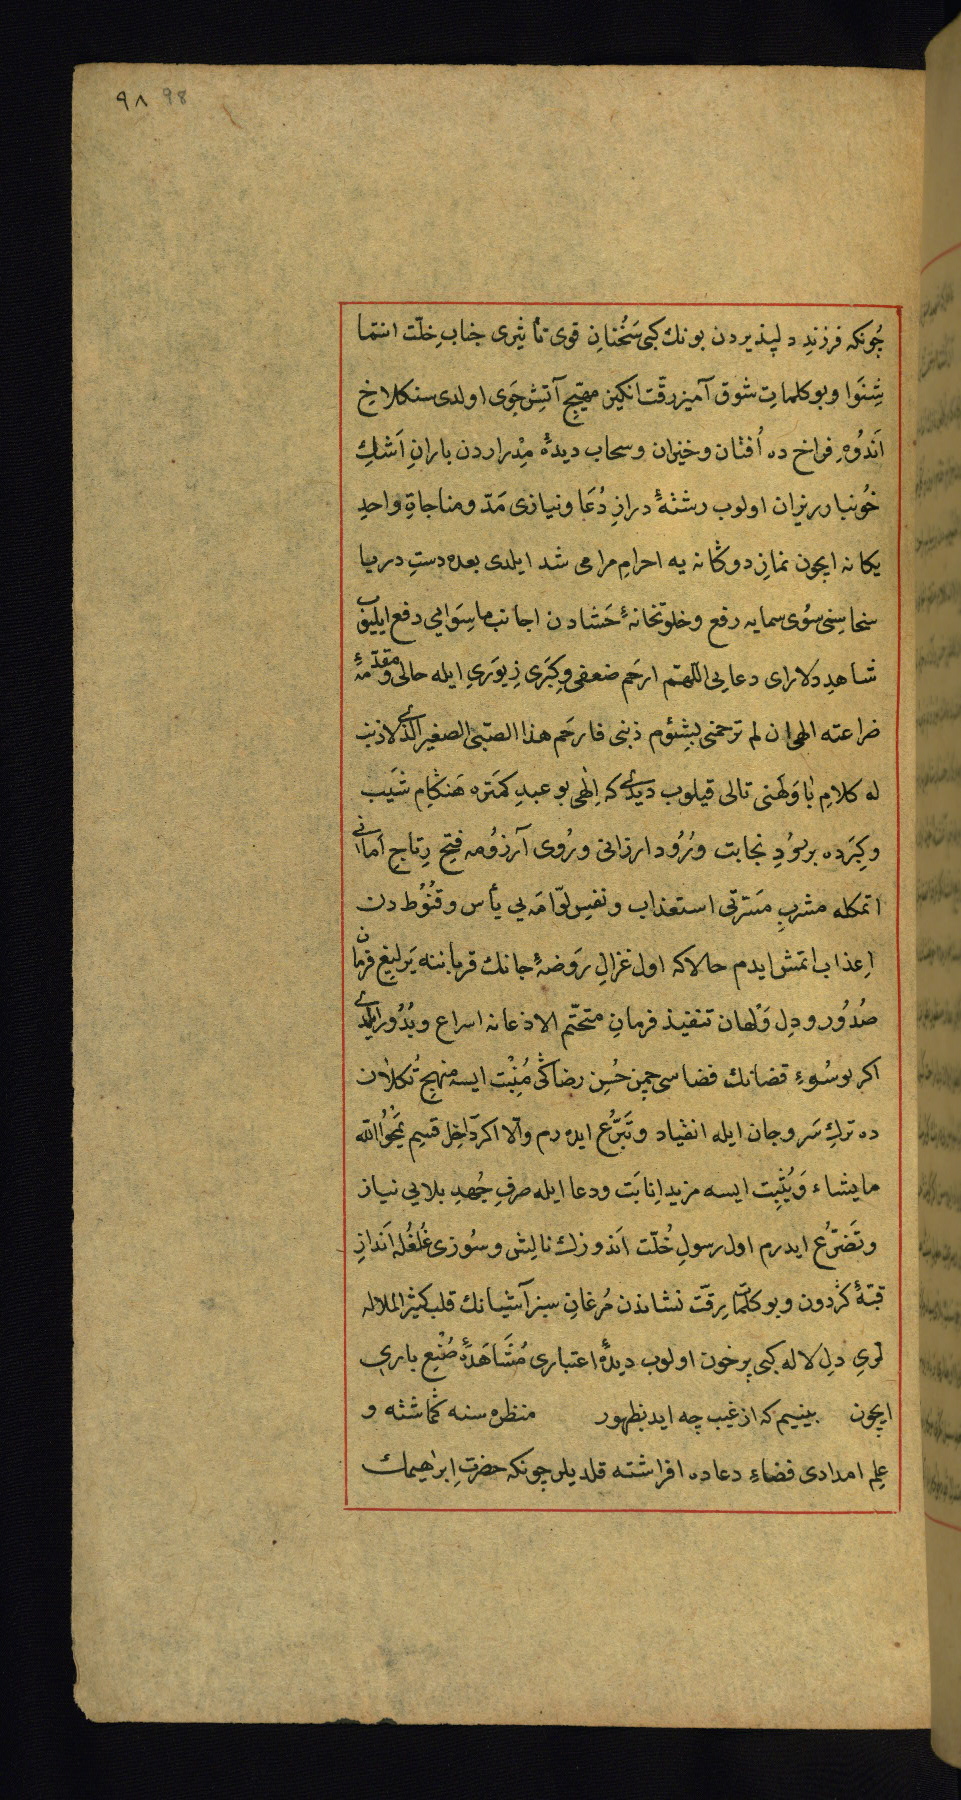 ٩٨ 98
چُونكه فرزندِ دلپذيردن بونك كبى سَخُنانِ قوى تأثيرى جنابِ خِلّت انتما
شِنَوا و بو كلماتِ شوق آميز رقّت انكيز مهيّجِ آتشِ جَوى اولدى سنكلاخِ
اَندُوهِ فراخ ده اُفتان و خيزان و سحاب ديدۀ مِدْراردن بارانِ اَشكِ
خُونبار ريزان اولوب رشتۀ درازِ دُعَا و نيازى مَدّ و مناجاةِ واحدِ
يكانه ايچون نمازِ دوكانه يه احرامِ مرامى شد ايلدى بعده دستِ دريا
سخاسِنى سُوى سمايه رفع و خلوتخانۀ حَشادن اجانب ماسِوايى دفع ايليوب
شاهدِ دلاراى دعايى اللّهمّ ارحَم ضعفى وكِبَرى زِيوَرى ايله حالى و مقدّمۀ
ضراعته الهى ان لم ترحمنى بِشئومِ ذبنى فارحَم هذا الصّبىّ الصغير الّذى لا ذنب
له كلامِ با وَلَهنى تالى قيلوب ديدى كه اِلٰهى بو عبدِ كمتره هَنكامِ شَيب
و كِبَرده بر بُودِ نجابت وُرُود ارزانى و رُوى آرزُومه فتحِ رِتاجِ اَمانى
اتمكله مشربِ مَسَرّتى استعذاب و نفسِ لوّامَه يى يأس و قُنُوطدن
اِعذاب اتمش ايدم حالاكه اول غزالِ رَوضۀ جانك قرباننه يَرليغِ فرمان
صُدُور و دِل وَلْهان تنفيذ فرمانِ متحتّم الاذعانه اسراع و بُدُور ايلدى
اكر بو سُوءِ قضانك فضاسى چمنِ حُسنِ رضاكى مُنْبِت ايسه منهجِ تُكلان
ده تركِ سَر و جان ايله انقياد و تَبَرُّع ايده رم والّا اكر داخِل قسيمِ يَمْحُوا الله
ما يشاء وَيُثْبِت ايسه مزيدِ اِنابَت و دعا ايله صرفِ جُهدِ بلايى نياز
و تَضَرُّع ايدرم اول رسولِ خُلّت اَندوزك نالِش و سُوزى غُلغُله اَندازِ
قبّۀ كردون و بو كلماتِ رقّت نشاندن مُرغانِ سبز آشيانك قلب كثير الملاله
لرى دِل لاله كبى پر خون اولوب ديدۀ اعتبارى مُشَاهَدۀ صُنْعِ بارى
ايچون بينيم كه از غيب چه ايد بظهور منظره سنه كماشته و
علمِ امدادى فضاءِ دعاده افراشته قلديلر چونكه حضرتِ ابراهيمك